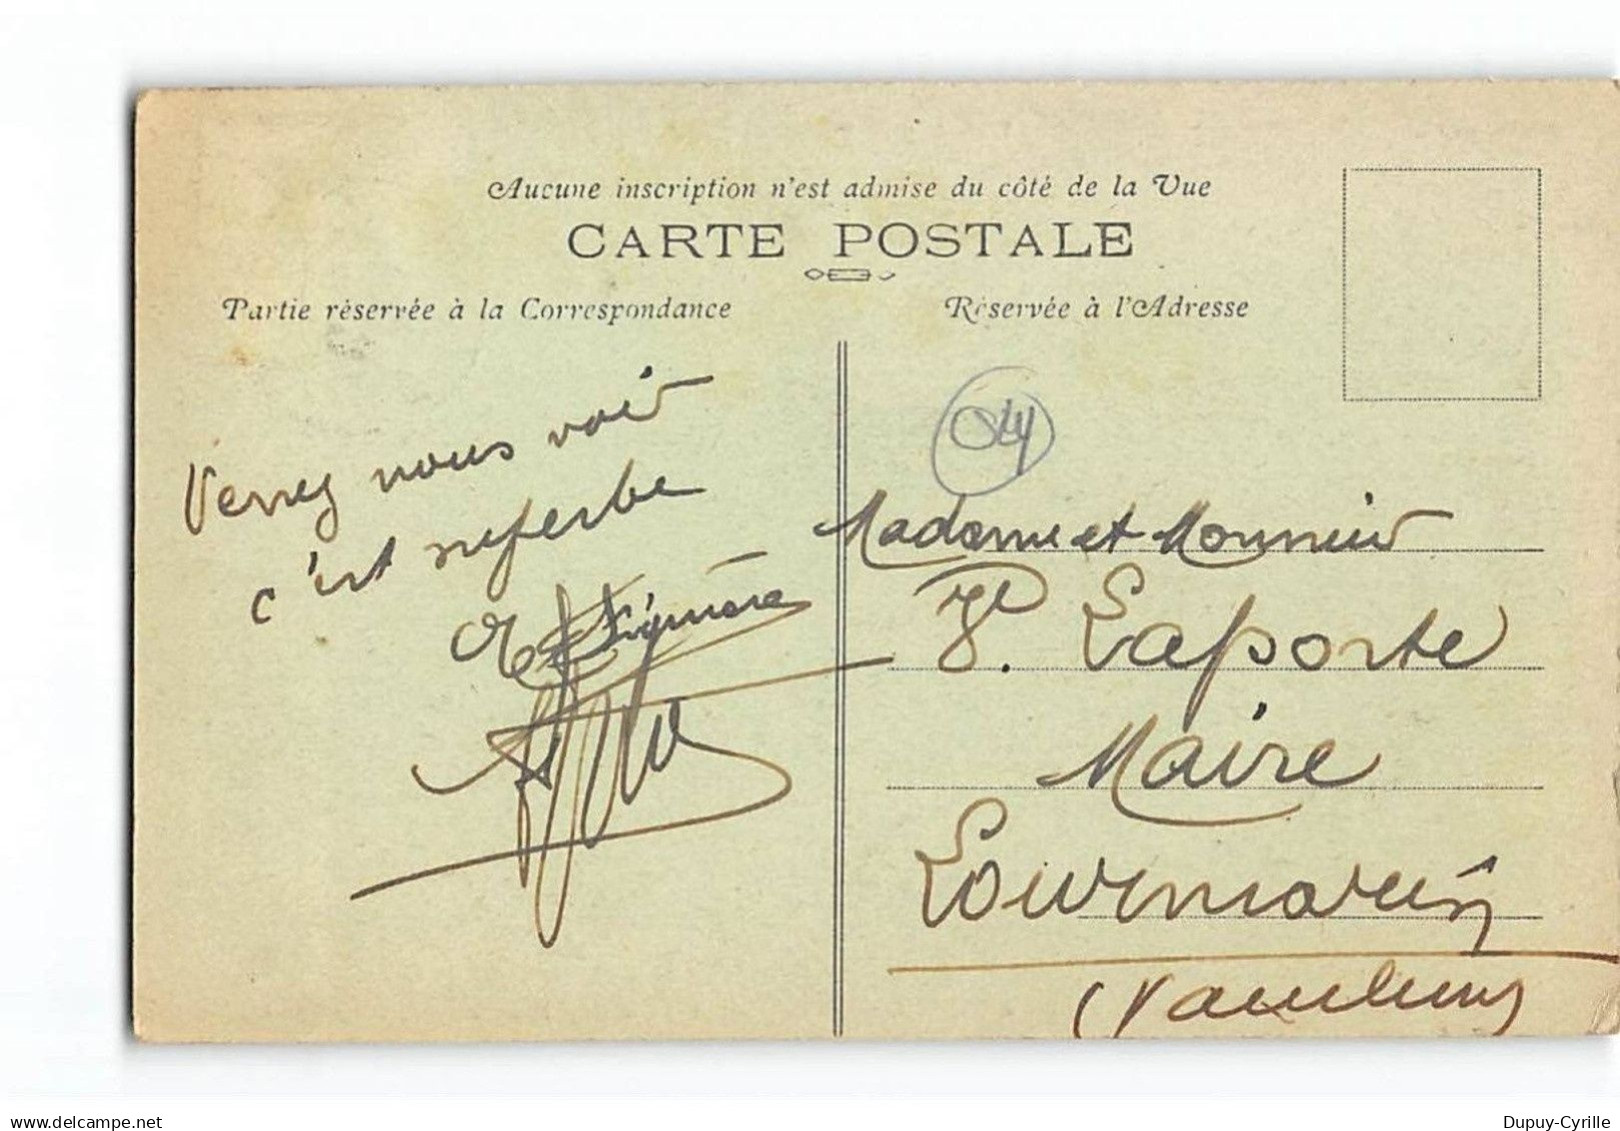 Aucune inscription n'est admise du côté de la Vue
CARTE POSTALE
Partie réservée à la Correspondance
Réservée à l'Adresse
Venez nous voir
c'est superbe
Madame et Monsieur
Laporte
Maire
Lourmarin
(Vaucluse)
delcampe.net
Dupuy-Cyrille